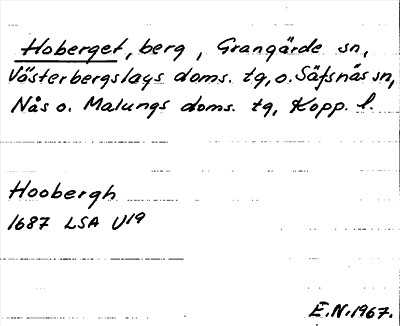 Hoberget, berg, Grangärde sn,
Västerbergslags doms. tg, o. Säfsnäs sn,
Nås o. Malungs doms. tg, Kopp. l.
Hoobergh
1687 LSA U19
E.N. 1967.